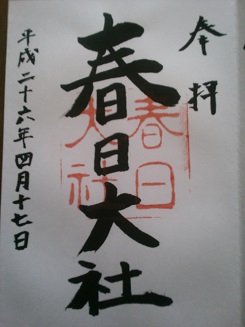 奉拝
春日大社
春日大社
平成二十六年四月十七日